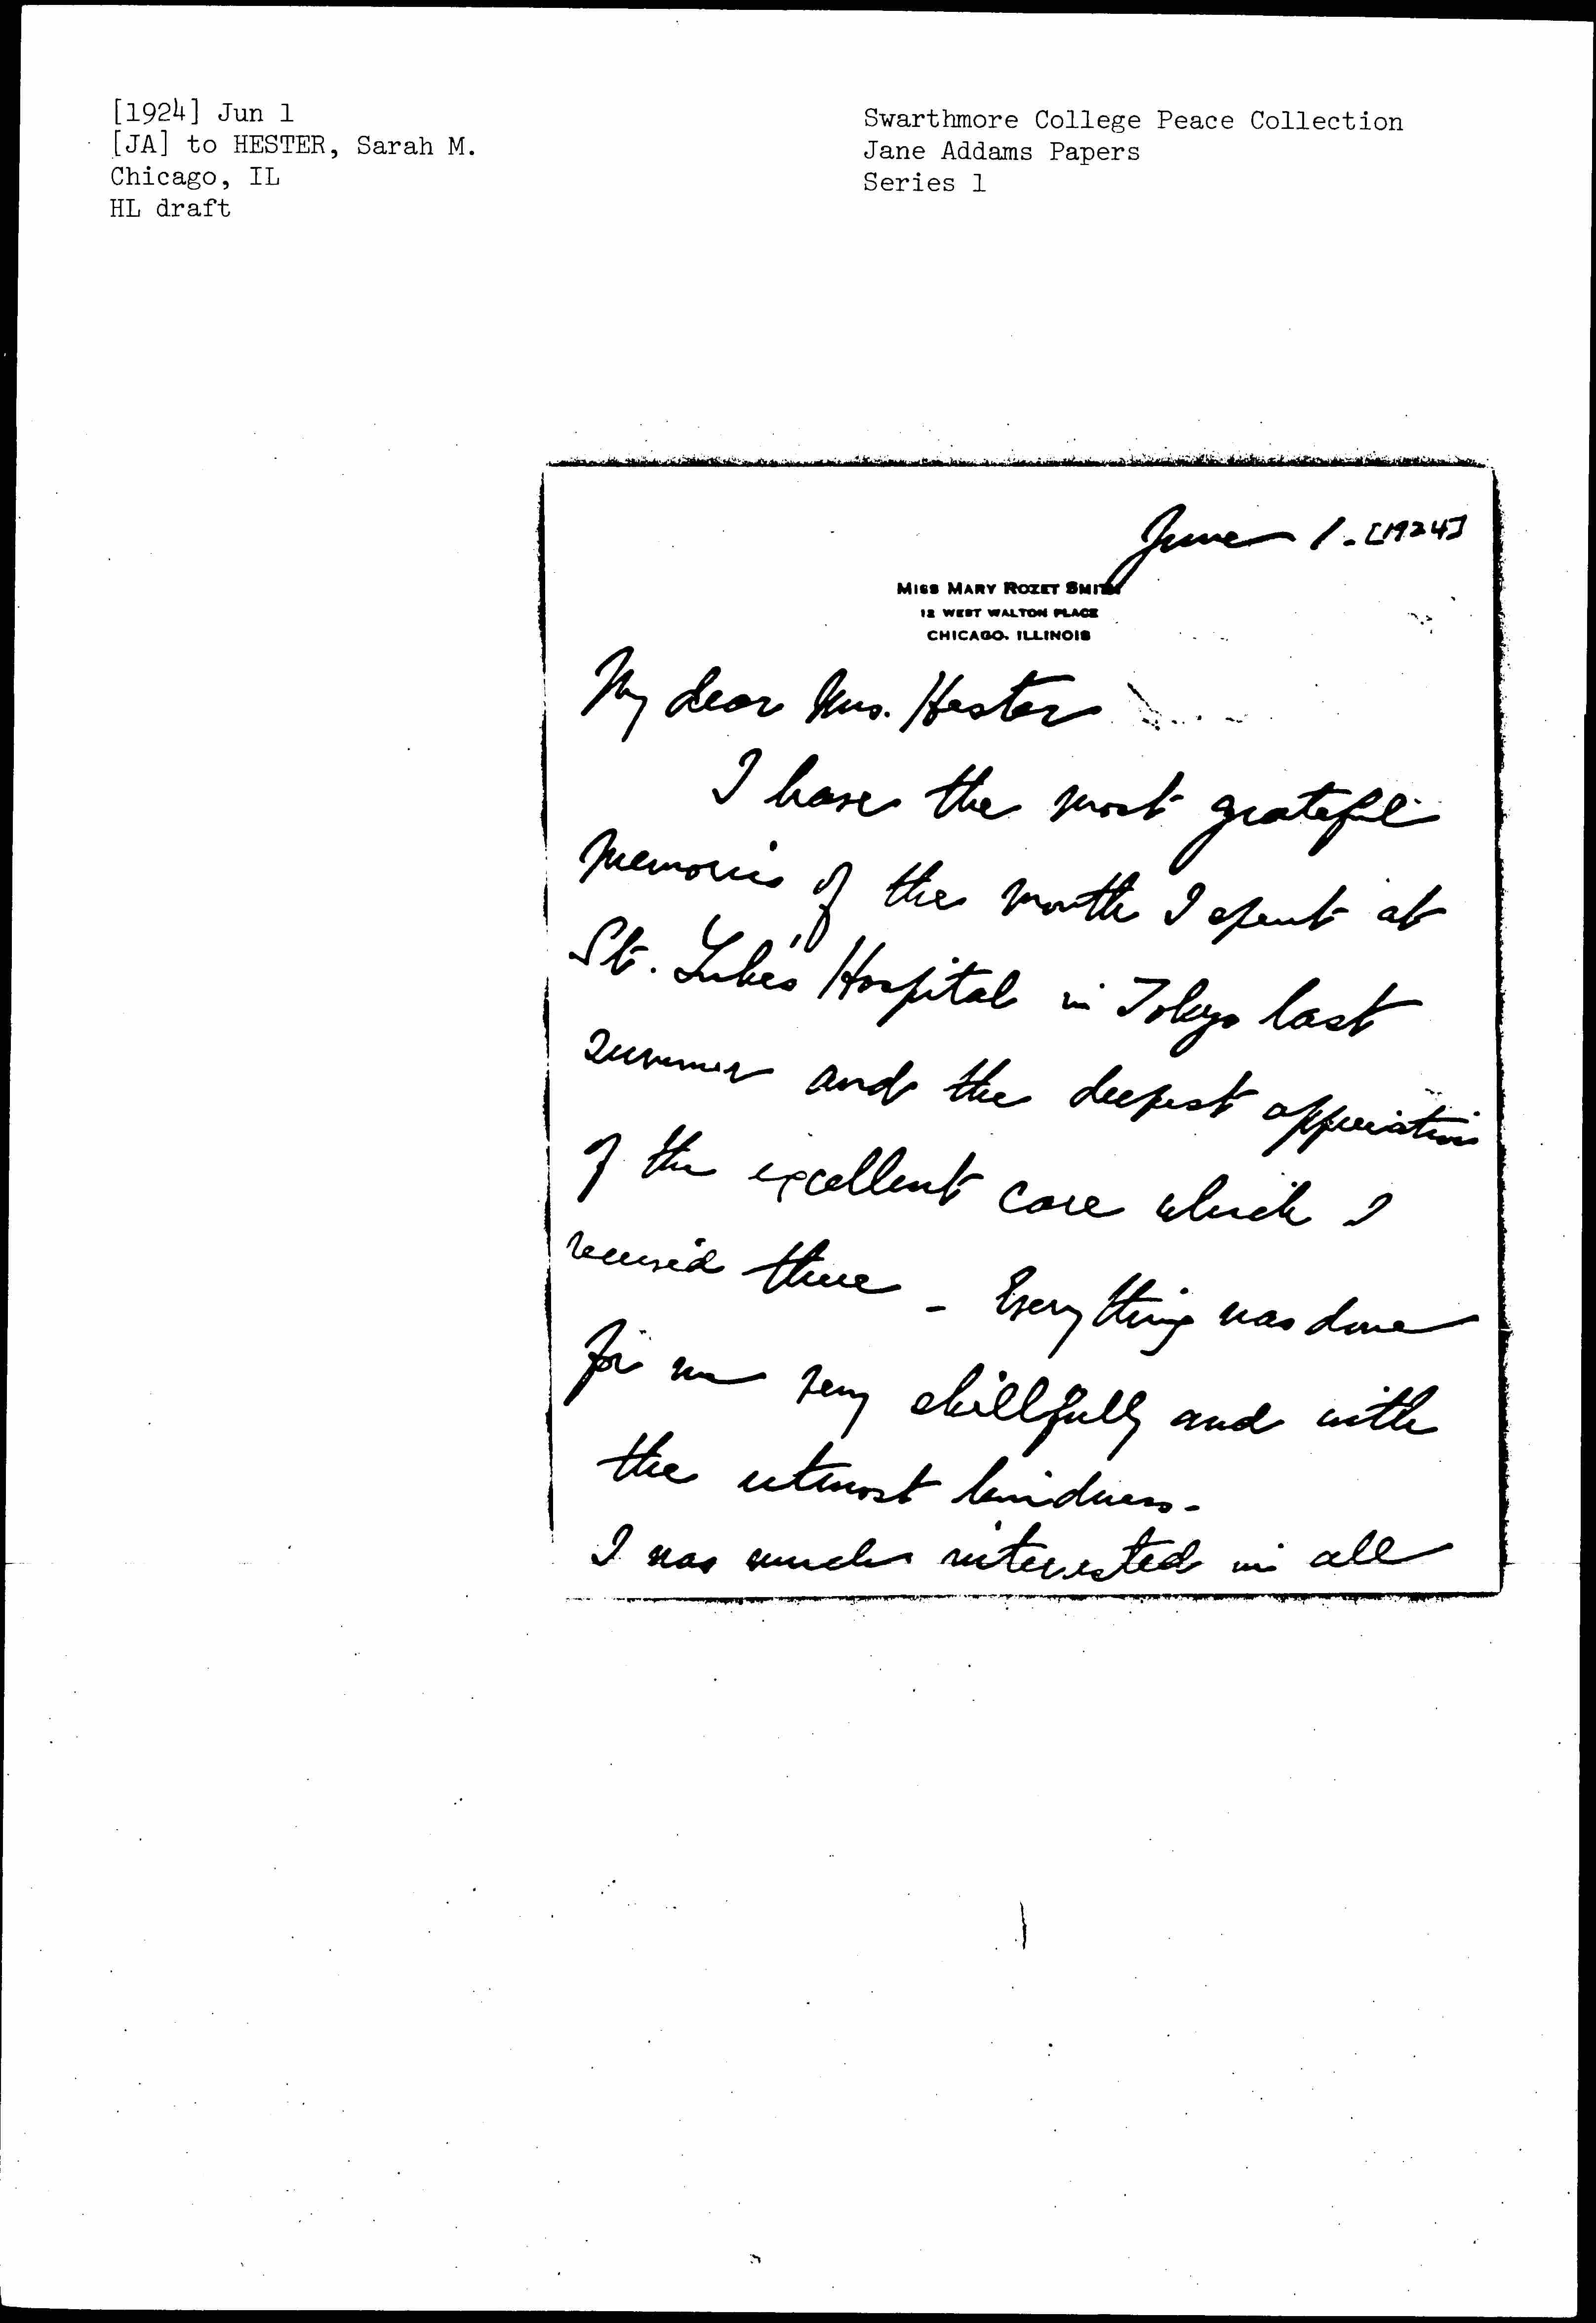 [1924] Jun 1
[JA] to HESTER, Sarah M.
Chicago, IL
HL draft
Swarthmore College Peace Collection
Jane Addams Papers
Series 1
June 1. [1924]
MISS MARY ROZET SMITH
12 WEST WALTON PLACE
CHICAGO, ILLINOIS
My dear Mrs. Hester
I have the most grateful
memories of the month I spent at
St. Luke's Hospital in Tokyo last
summer and the deepest appreciation
of the excellent care which I
received there - Everything was done
for me very skillfully and with
the utmost kindness -
I was much interested in all